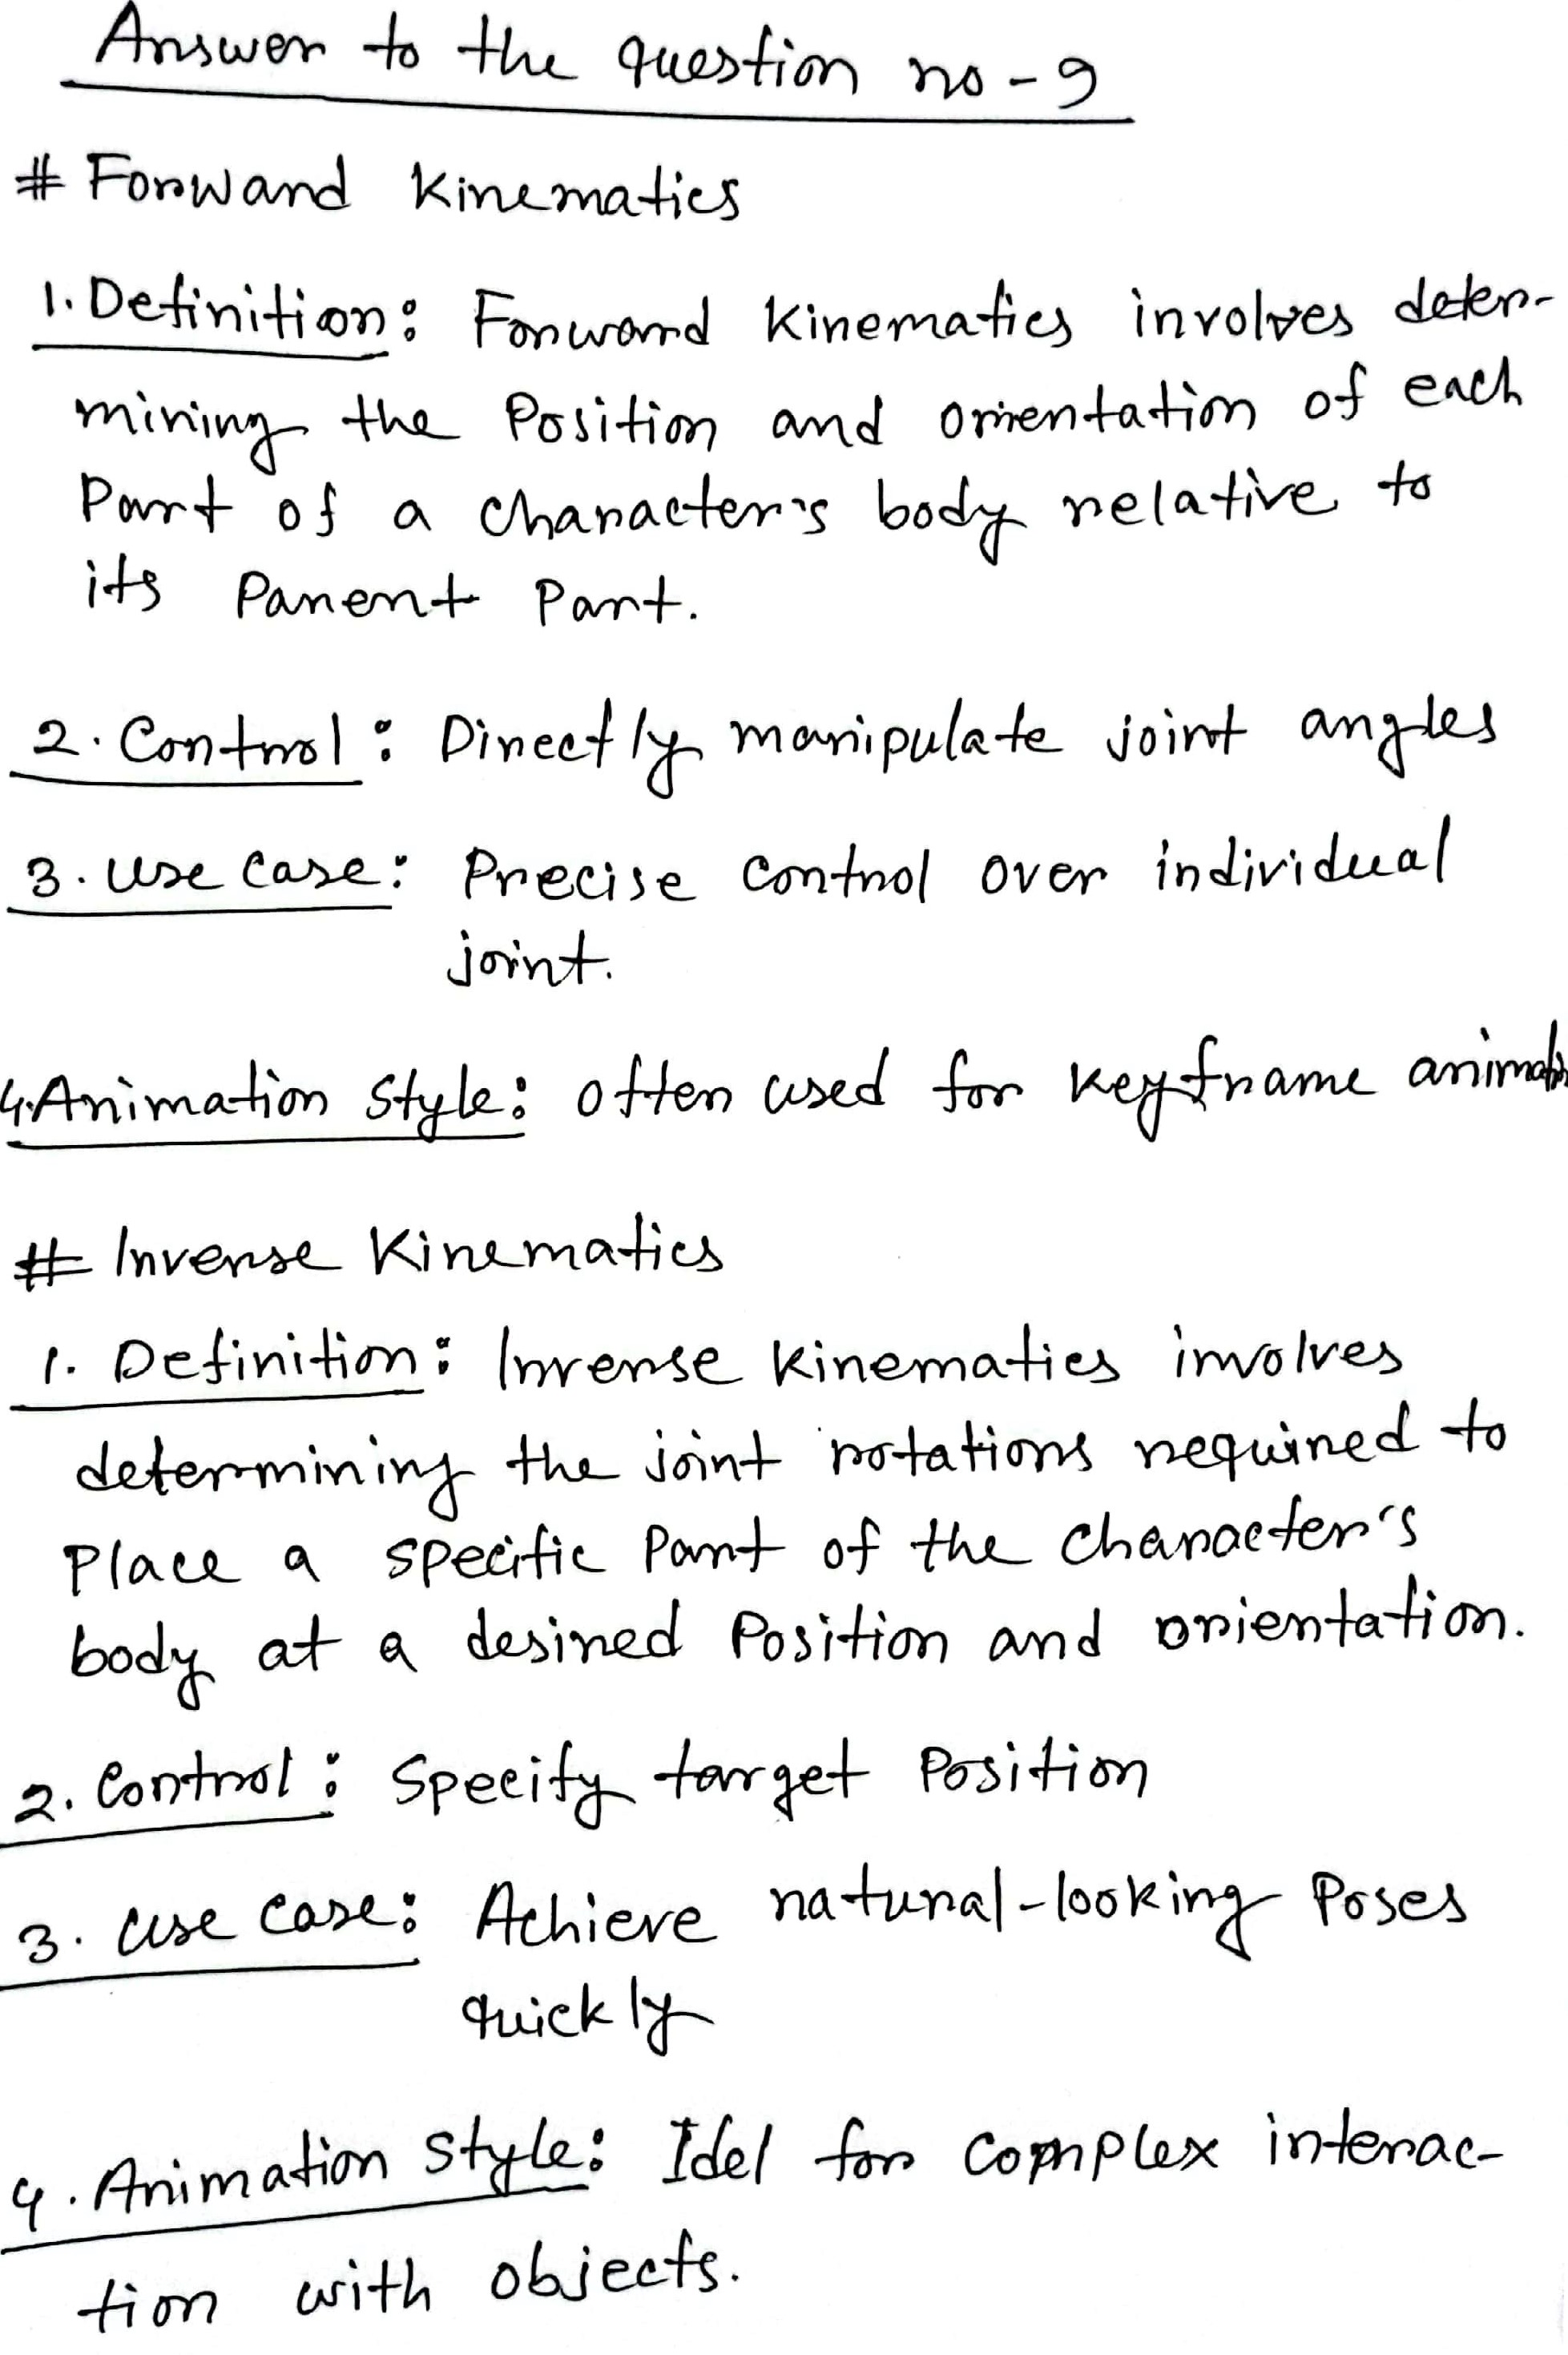 Answer to the question no - 9
# Forward Kinematics
1. Definition: Forward Kinematics involves deter-
mining the Position and orientation of each
Part of a character's body relative to
its Parent Part.
2. Control: Directly manipulate joint angles
3. Use Case: Precise control over individual
joint.
4. Animation Style: Often used for keyframe animation
# Inverse Kinematics
1. Definition: Inverse Kinematics involves
determining the joint rotations required to
Place a specific Part of the character's
body at a desired Position and orientation.
2. Control: Specify target Position
3. Use Case: Achieve natural-looking Poses
quickly
4. Animation Style: Idel for complex interac-
tion with objects.